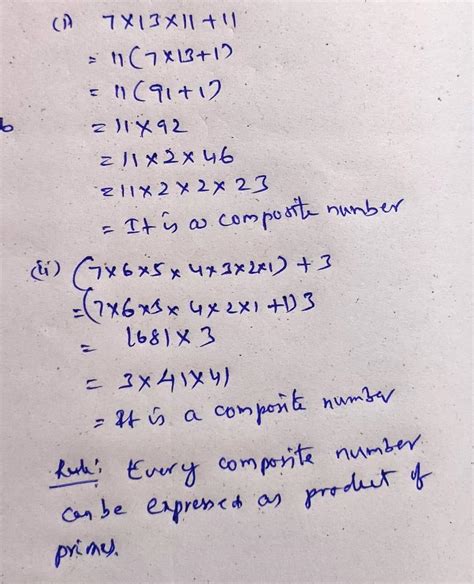 (i) 7×13×11+11
= 11(7×13+1)
= 11(91+1)
b
= 11×92
= 11×2×46
= 11×2×2×23
= It is a composite number
(ii) (7×6×5×4×3×2×1)+3
=(7×6×5×4×2×1+1)3
= 1681×3
= 3×41×41
= It is a composite number
Rule: Every composite number
can be expressed as product of
primes.